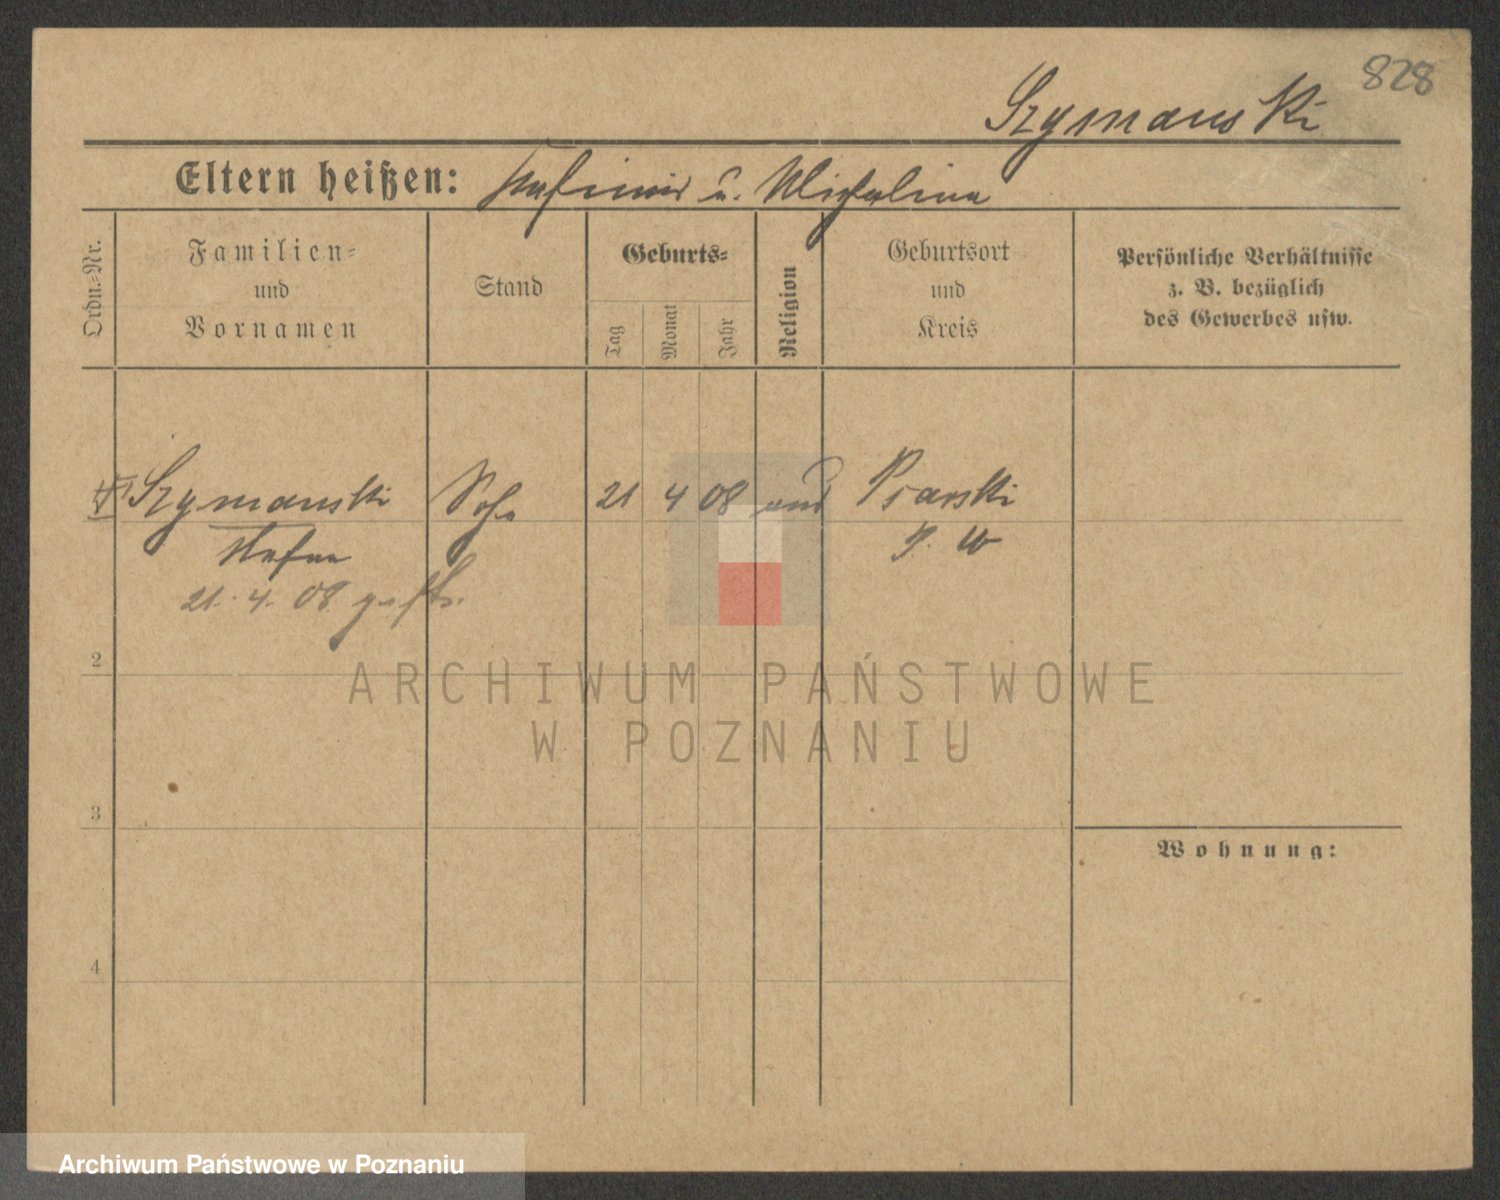 828
Szymanski
Eltern heißen: u. Michalina
Ordn.=Nr.
Familien=
und
Vornamen
Stand
Geburts=
Tag
Monat
Jahr
Religion
Geburtsort
und
Kreis
Persönliche Verhältnisse
z. B. bezüglich
des Gewerbes usw.
Szymanski Sohn 21 4 08 Psarski
Stefan P. W
21. 4. 08
2
3
4
Wohnung:
ARCHIWUM PAŃSTWOWE
W POZNANIU
Archiwum Państwowe w Poznaniu